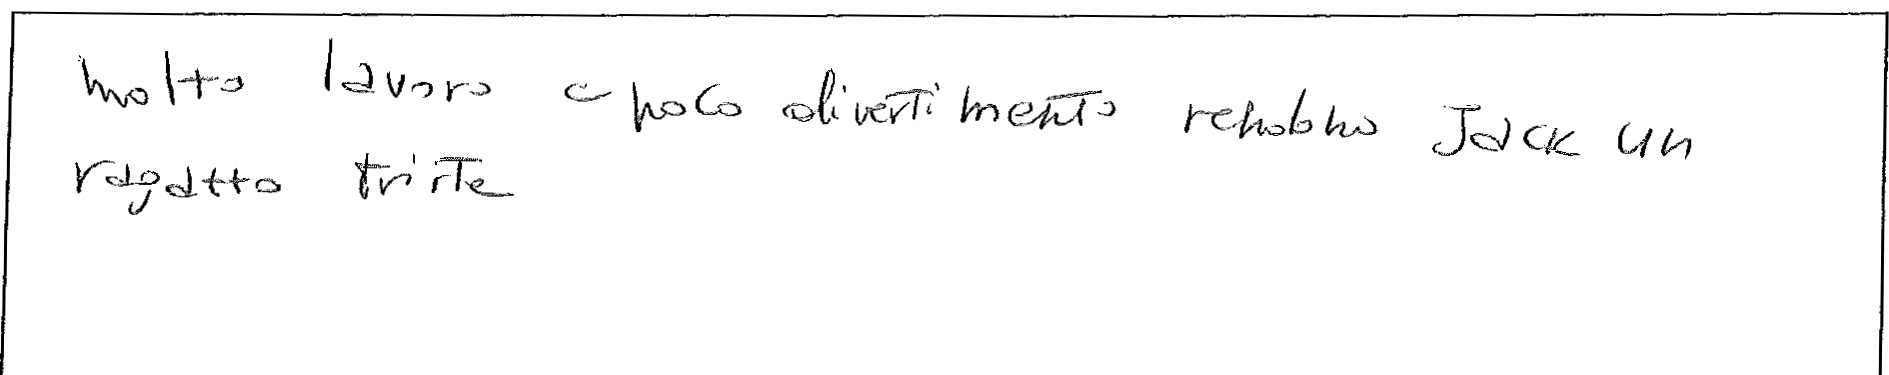 molto lavoro e poco divertimento rendono Jack un
ragatto triste